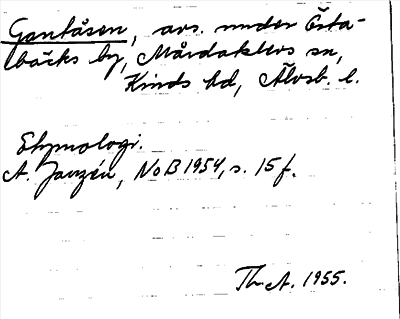 Gantåsen, avs. under Östa-
bäcks by, Mårdaklevs sn,
Kinds hd, Älvsb. l.
Etymologi.
A. Janzén, NoB 1954, s. 15 f.
Th. A. 1955.